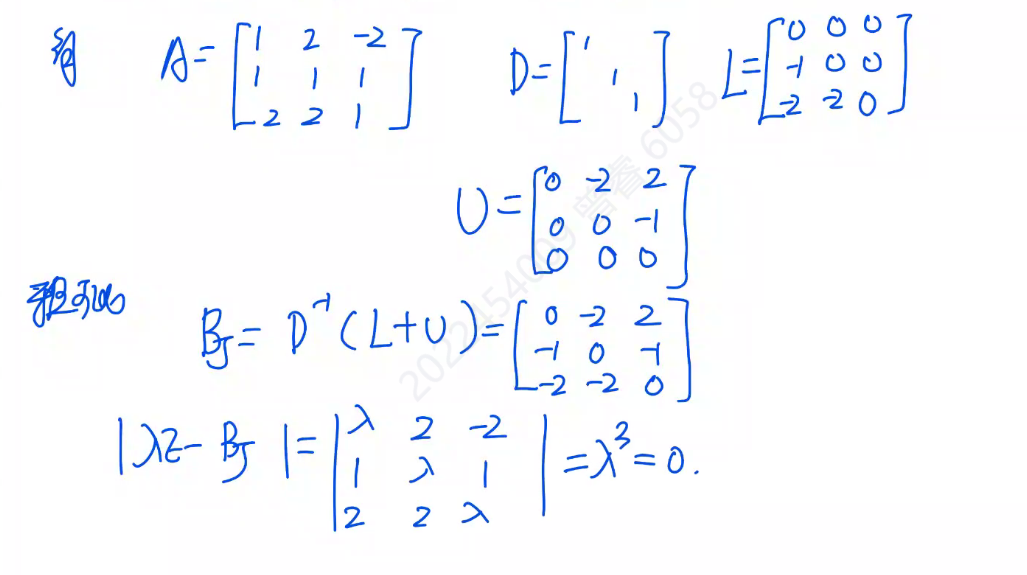 A = [1 2 -2; 1 1 1; 2 2 1] D = [1 1 1] L = [0 0 0; -1 0 0; -2 -2 0]
U = [0 -2 2; 0 0 -1; 0 0 0]
B_J = D⁻¹(L+U) = [0 -2 2; -1 0 -1; -2 -2 0]
|λE - B_J| = |λ 2 -2; 1 λ 1; 2 2 λ| = λ³ = 0.
2022454009 曾睿 6058